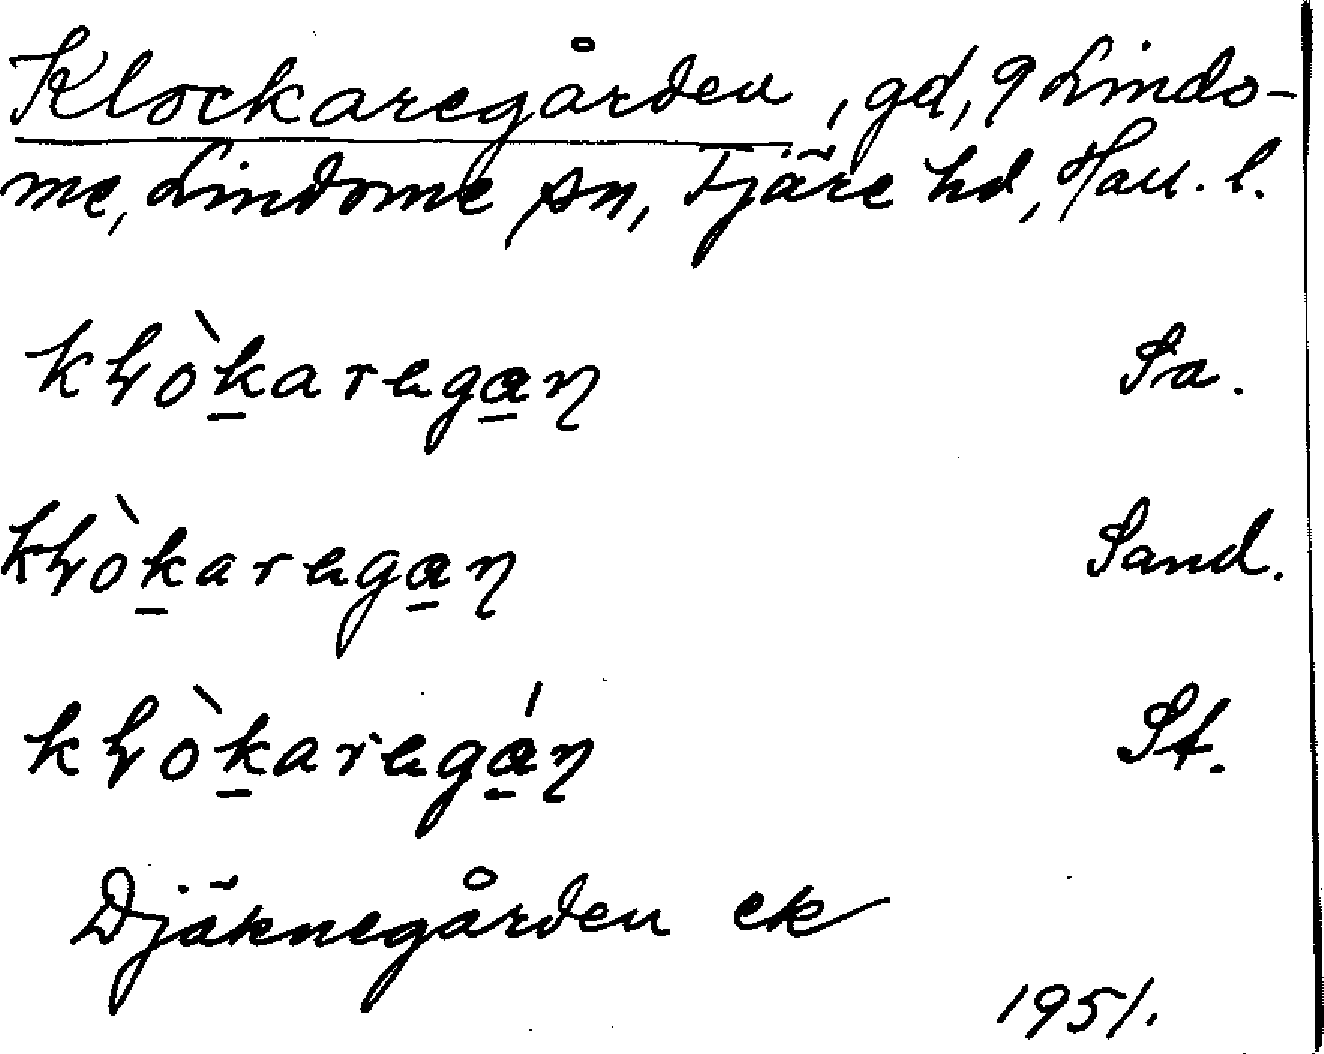 Klockaregården, gd, 9 Lindo-
me, Lindome sn, Fjäre hd, Hall. l.
kɫòk̲arega̲ꞃ Sa.
kɫòk̲arega̲ꞃ Sand.
kɫòk̲aregá̲ꞃ St.
Djäknegården ek
1951.